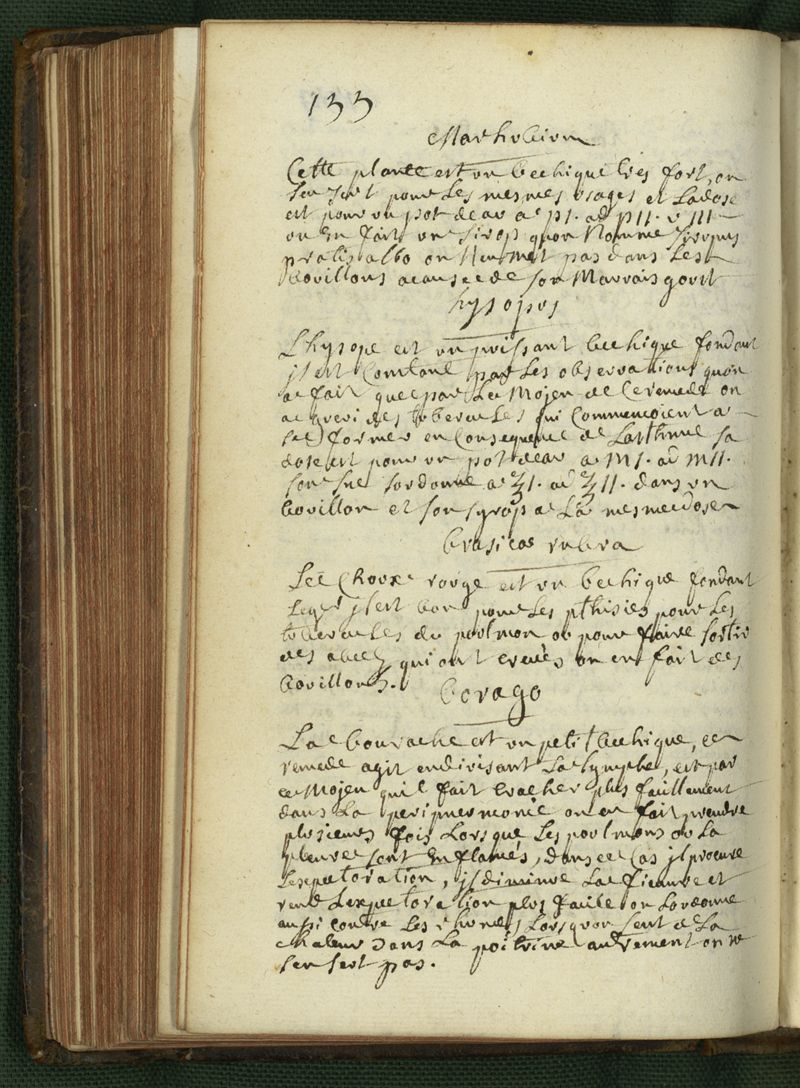 133
Marhubium
Cette plante est un bechique tres fort, on
sen sert pour les mesmes usages et la dose
est pour un pot deau a p1. ad p11. v 111
on en fait un sirop quon nomme syrupus
prasis albo on nen met pas dans les
bouillons acause de son mauvais gout
hysopus
Lhysope est un puissant bechique fondant
jl est constant par les observations quon
a fait que par le mojen de ce remede on
a gueri des tubercules qui commencoient a
se former en consequence de lasthme sa
dose est pour un pot deau a m1. ad m11.
son suc sordonne a ℥1. ad ℥11. dans un
bouillon et son syrop a la mesme dose
brasica rubra
Le choux rouge est un bechique fondant
leger jl est bon pour les pthisies pour les
tubercules du poulmon ou pour faire sortir
des abcez qui ont crevés on en fait des
bouillons.
borago
La bourache est un petit bechique, ce
remede agit en divisant la lymphe, est par
ce mojen quil fait cracher plus facillement
dans la peripneumonie on en fait prendre
plusieurs fois lorsque les poulmons ou la
pleure sont enflamés, dans ce cas jl procure
lexpectoration, jl diminue la fieuvre et
rend lexpectoration plus facile on lordonne
aussi contre les rhumes lorsquon sent de la
chaleur dans la poitrine autrement on ne
sen sert pas.